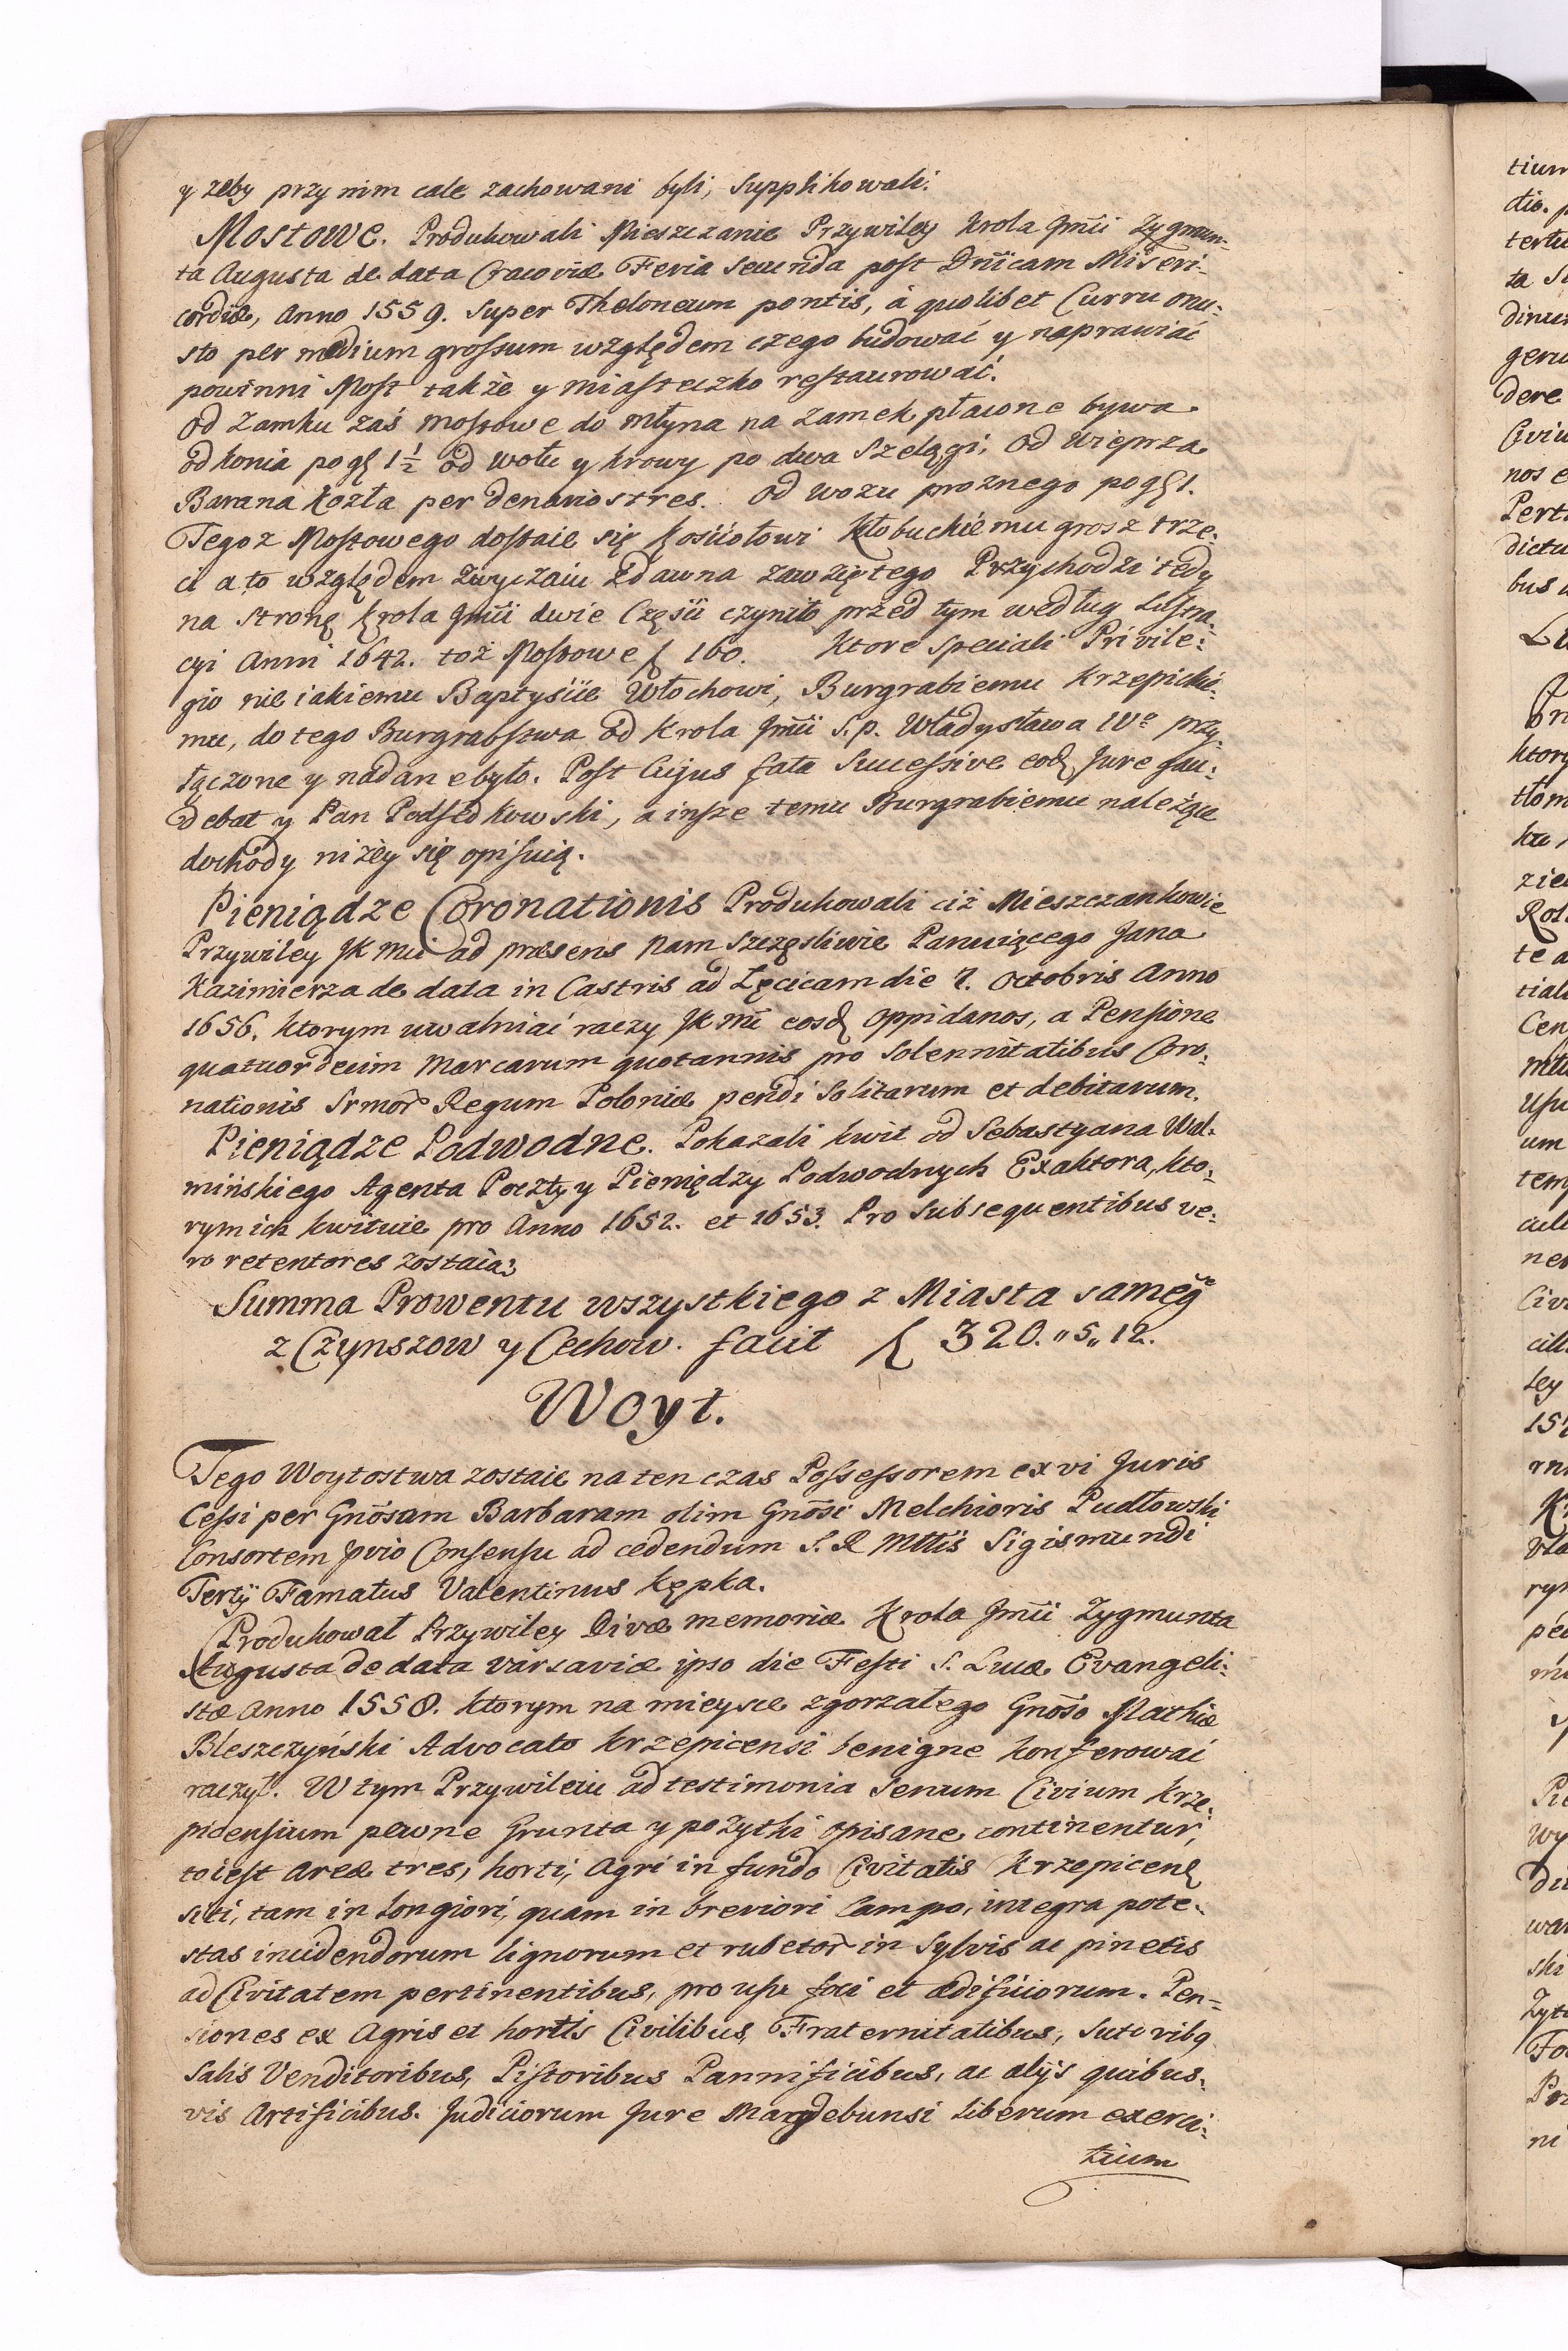 y zeby przy nim cale zachowani byli, Supplikowali.
Mostowe. Produkowali Mieszczanie Przywiley Krola Jm̃ci Zygmun-
ta Augusta de data Cracoviæ Feria Secunda post Dñicam Miseri-
cordiæ, Anno 1559. Super Theloneum pontis, à quolibet Curru onu-
sto per medium grossum względem czego budować y naprawiać
powinni Most także y miasteczko restaurować.
Od Zamku zaś mostowe do młyna na Zamek płacone bywa
od konia po gſ 1½ od wołu y krowy po dwa Szelągi, Od Wieprza
Barana Kozła per denarios tres. Od wozu proznego po gſ 1.
Tego z Mostowego dostaie się Kościołowi Kłobuckiemu grosz trze-
ci a to względem zwyczaiu zdawna zawziętego Przychodzi tedy
na stronę Krola Jm̃ci dwie Części czyniło przed tym według Lustra-
cyi Anni 1642. toż Mostowe ſ 160. Ktore Speciali Privile-
gio nieiakiemu Baptyście Włochowi, Burgrabiemu Krzepicki-
mu, do tego Burgrabstwa od Krola Jm̃ci S.p. Władysława IVº przy-
łączone y nadane było. Post Cujus fata Successive eodſ Jure gau-
debat y Pan Podsędkowski, a insze temu Burgrabiemu należące
dochody niżey się opisuią.
Pieniądze Coronationis Produkowali ciż Mieszczankowie
Przywiley JK Mci ad præsens nam Szczęsliwie Panuiącego Jana
Kazimierza de data in Castris ad Łęcicam die 7. Octobris Anno
1656. ktorym uwalniać raczy JK Mć eosdſ Oppidanos, a Pensione
quatuordecim Marcarum quotannis pro Solennitatibus Coro-
nationis Srmor̃ Regum Poloniæ pendi Solitarum et debitarum.
Pieniądze Podwodne. Pokazali kwit od Sebastyana Wol-
mińskiego Agenta Poczty y Pieniędzy Podwodnych Exaktora, kto-
rym ich kwituie pro Anno 1652. et 1653. Pro Subsequentibus ve-
ro retentores zostaią.
Summa Prowentu wszystkiego z Miasta samegº
z Czynszow y Cechow. facit ſ 320."5"12.
Woyt.
Tego Woytostwa zostaie na ten czas Possessorem ex vi Juris
Cessi per Gnõsam Barbaram olim Gnõsi Melchioris Pudłowski
Consortem pvio Consensu ad cedendum S. R Mttis Sigismundi
Tertÿ Famatus Valentinus Kępka.
Produkował Przywiley Divæ memoriæ Krola Jm̃ci Zygmunta
Augusta de data Varsaviæ ipso die Festi S. Lucæ Evangeli-
stæ Anno 1558. ktorym na mieysce zgorzałego Gnõso Mathiæ
Bleszczyński Advocato Krzepicensi benigne konferować
raczył. W tym Przywileiu ad testimonia Senum Civium Krze-
picensium pewne Grunta y pożytki opisane continentur,
to iest Areæ tres, horti, Agri in fundo Civitatis Krzepicenſ
siti, tam in longiori, quam in breviori Campo, integra pote-
stas incidendorum lignorum et rubetor̃ in Sylvis ac pinetis
ad Civitatem pertinentibus, pro usu foci et ædificiorum. Pen-
siones ex Agris et hortis Civilibus, Fraternitatibus, Sutoribq
Salis Venditoribus, Pistoribus Pannificibus, ac alÿs quibus-
vis Artificibus. Judiciorum Jure Magdebunsi liberum exerci-
tium